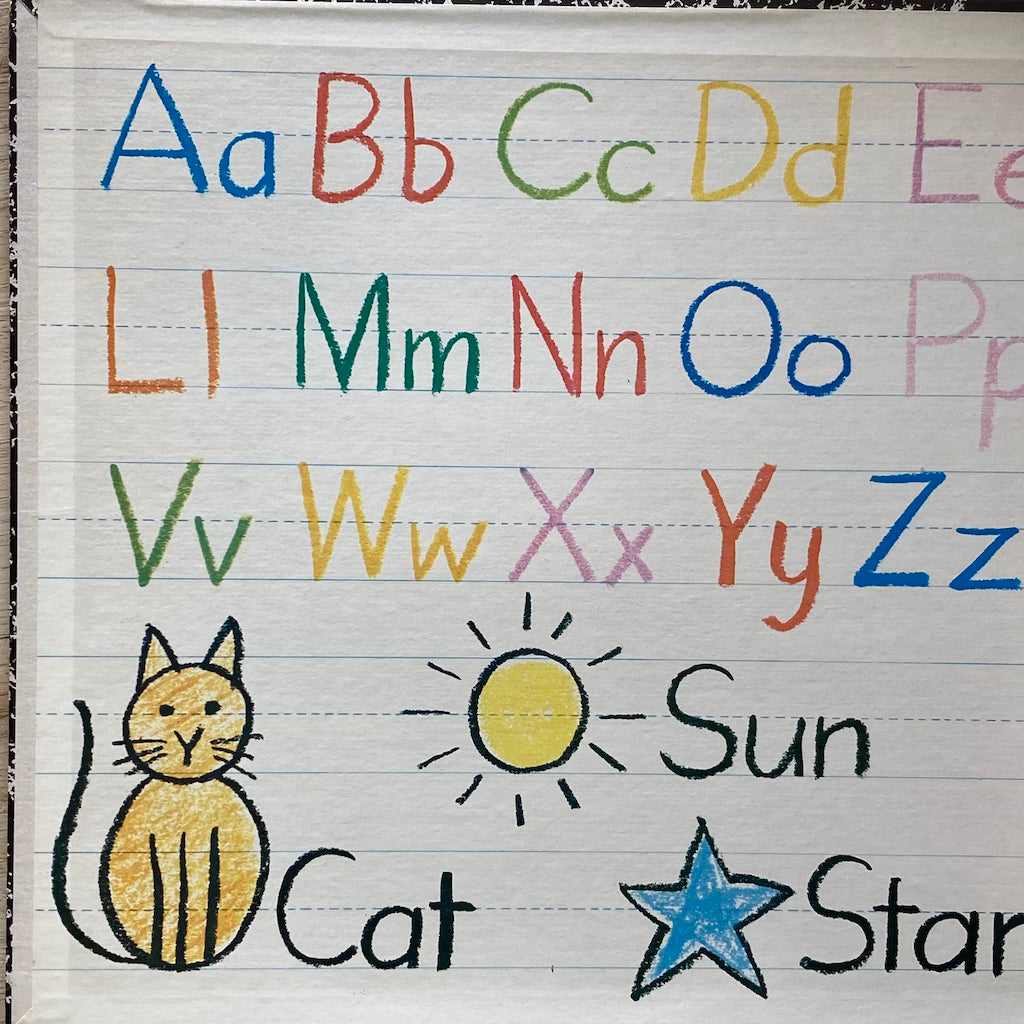 Aa Bb Cc Dd Ee
Ll Mm Nn Oo Pp
Vv Ww Xx Yy Zz
Sun
Cat Star